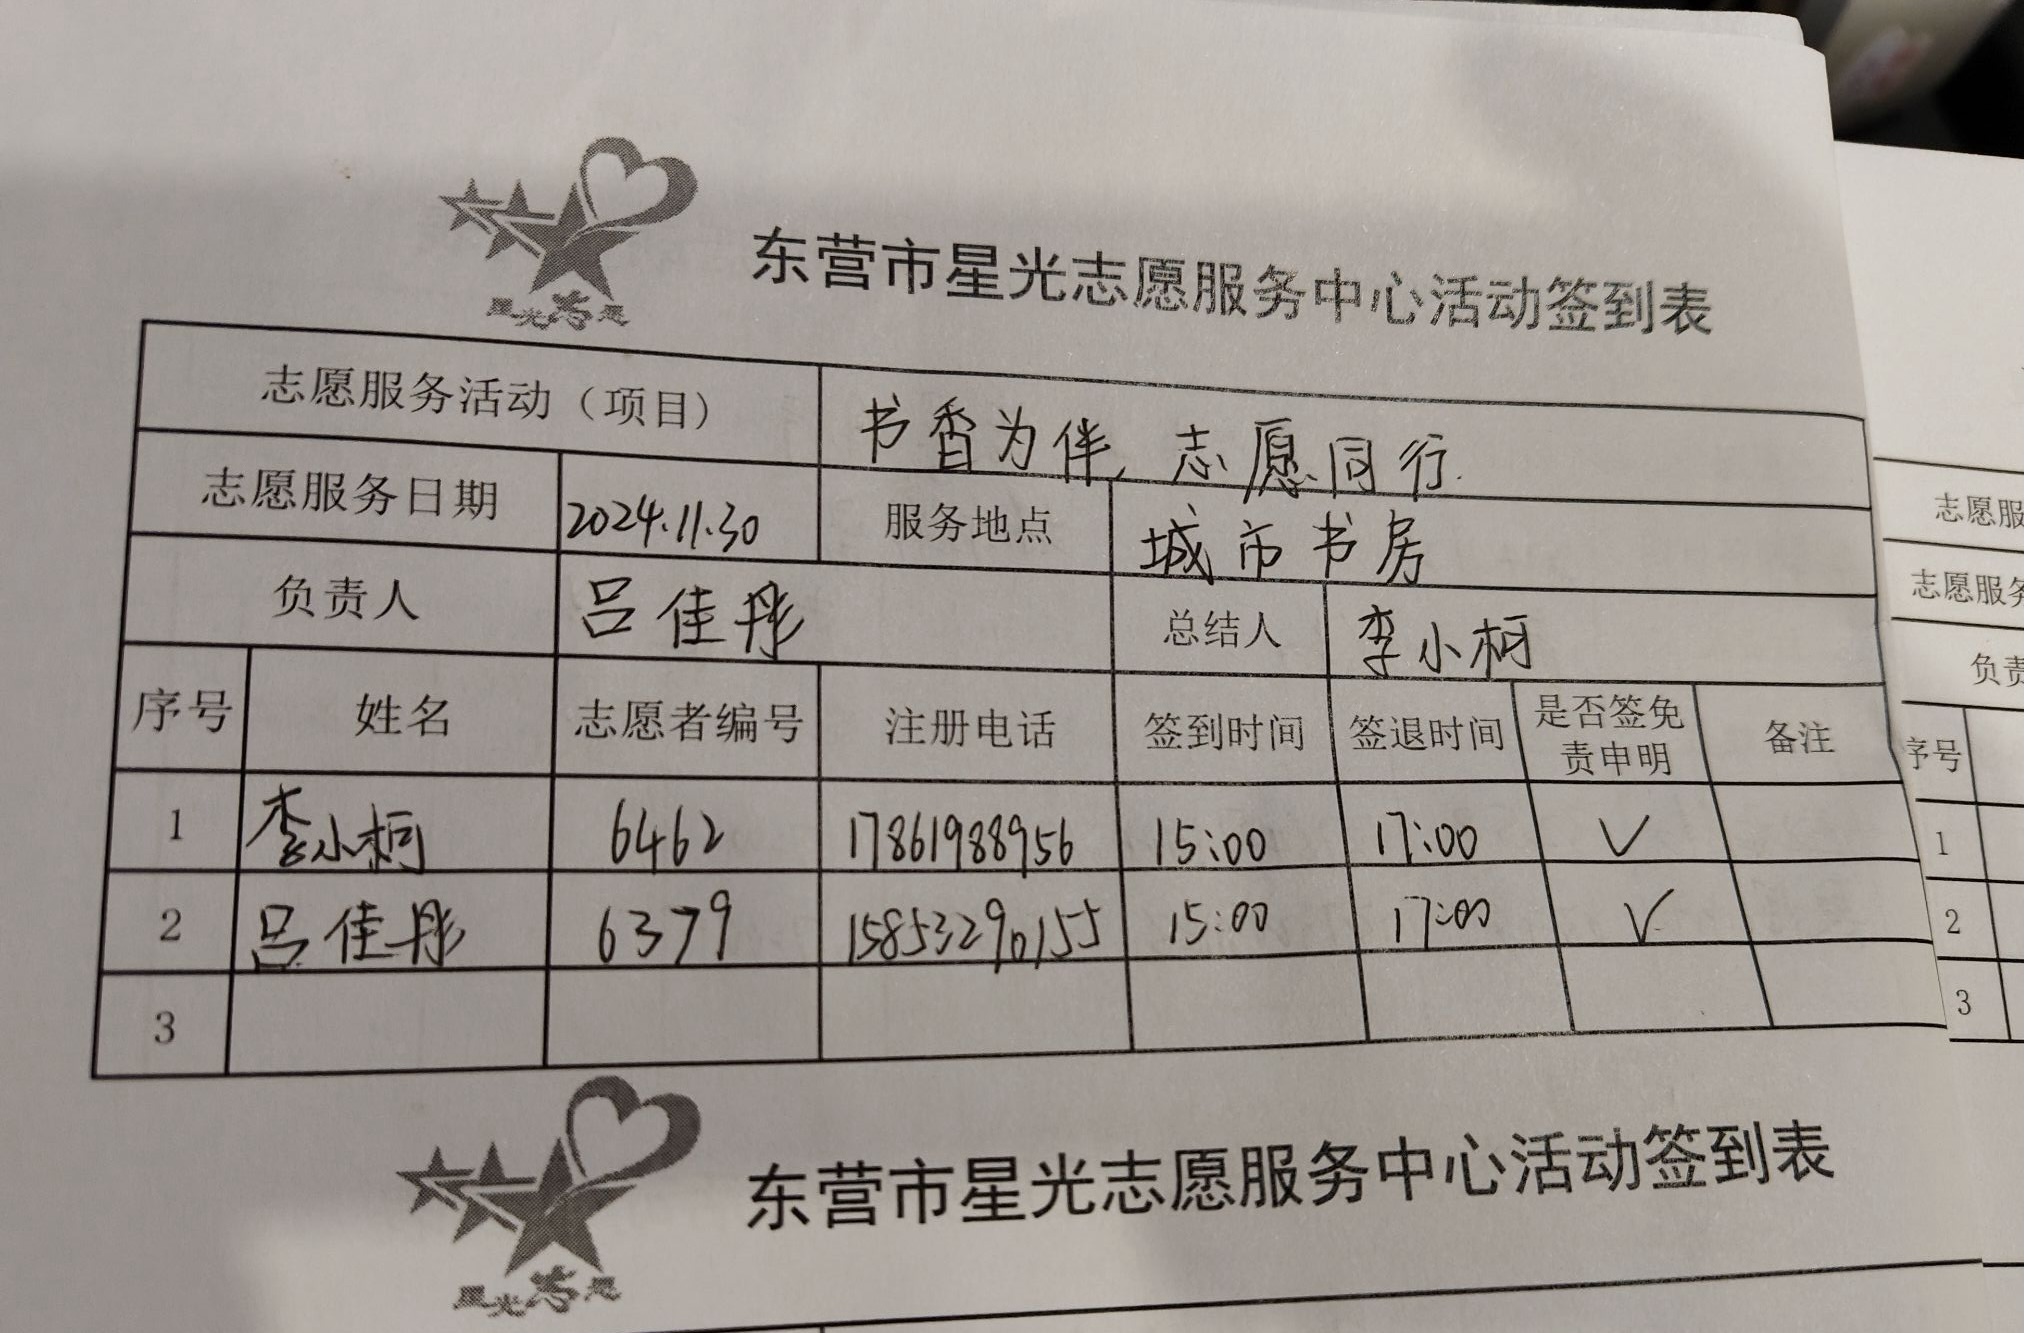 星光志愿
东营市星光志愿服务中心活动签到表
志愿服务活动（项目） 书香为伴，志愿同行.
志愿服务日期 2024.11.30 服务地点 城市书房
负责人 吕佳彤 总结人 李小柯
序号 姓名 志愿者编号 注册电话 签到时间 签退时间 是否签免责申明 备注
1 李小柯 6462 17861988956 15:00 17:00 √
2 吕佳彤 6379 15853290155 15:00 17:00 √
3
星光志愿
东营市星光志愿服务中心活动签到表
志愿服
志愿服务
负责
序号
1
2
3